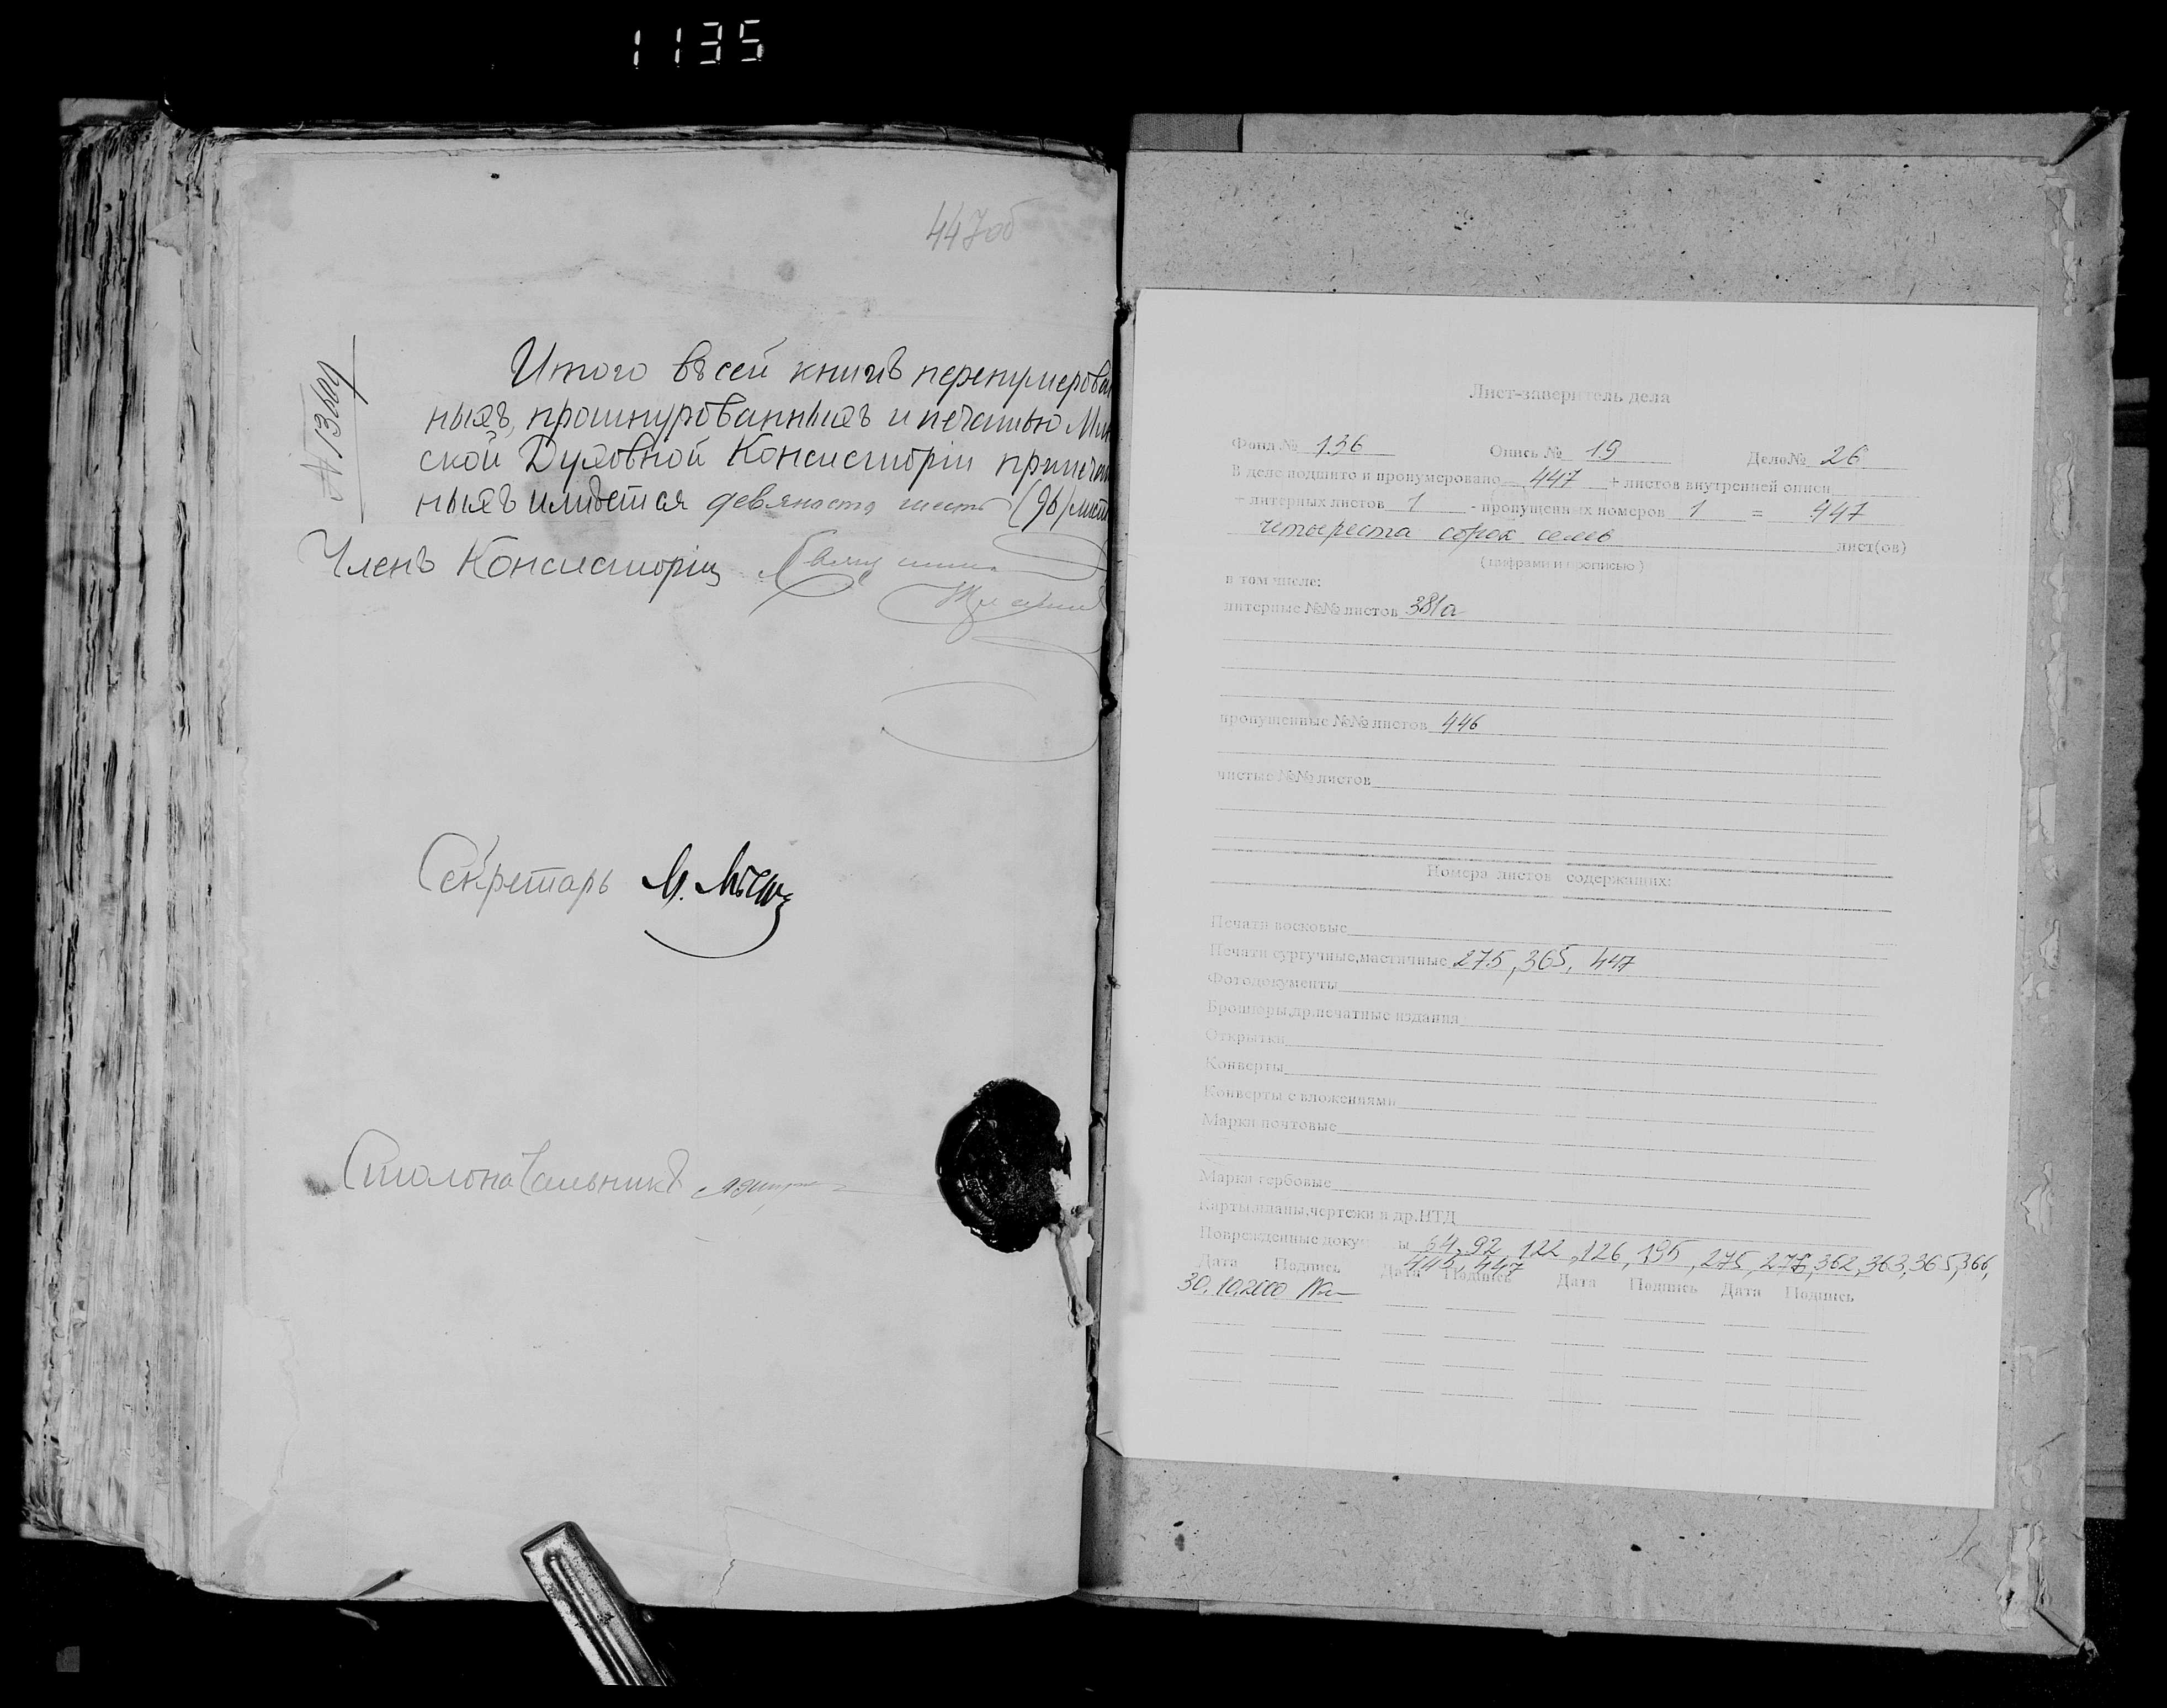 1135
447об
Итого въ сей книгѣ перенумерован
ныхъ, прошнурованныхъ и печатью Мин
ской Духовной Консисторіи припечатан
ныхъ имѣется девяносто шесть (96) лист
Членъ Консисторіи
Секретарь
Столоначальникъ
Лист-заверитель дела
Фонд № 136 Опись № 19 Дело№ 26
В деле подшито и пронумеровано 447 + листов внутренней описи
+ литерных листов 1 - пропущенных номеров 1 = 447
четыреста сорок семь лист(ов)
(цифрами и прописью)
в том числе:
литерные №№ листов 381а
пропущенные №№ листов 446
чистые №№ листов
Номера листов содержащих:
Печати восковые
Печати сургучные,мастичные 275, 365, 447
Фотодокументы
Брошюры,др.печатные издания
Открытки
Конверты
Конверты с вложениями
Марки почтовые
Марки гербовые
Карты,планы,чертежи и др.НТД
Поврежденные доку ы 64, 92, 122, 126, 195, 275, 278, 362, 363, 365, 366,
445, 447
Дата Подпись Дата Подпись Дата Подпись Дата Подпись
30.10.2000